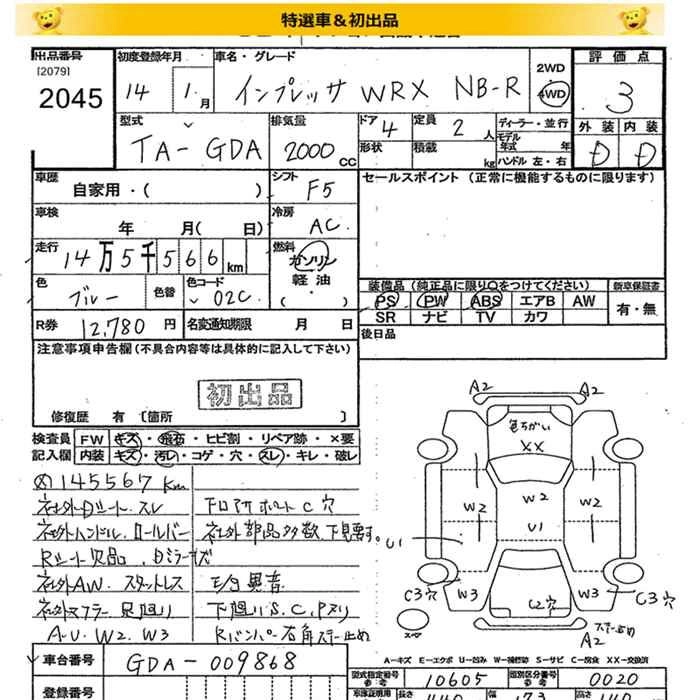 特選車＆初出品
出品番号 初度登録年月 車名・グレード 2WD 評価点
[2079]
2045 14 1月 インプレッサ WRX NB-R 4WD 3
型式 排気量 ドア 定員 ディーラー・並行 外装 内装
TA-GDA 2000cc 4 2人 モデル年式 年
形状 積載 kg ハンドル 左・右 D D
車歴 シフト セールスポイント（正常に機能するものに限ります）
自家用・（ ） F5
車検 冷房
年 月（ 日） AC
走行 燃料
14万5千566km ガソリン
軽油
色 色替 色コード 装備品（純正品に限り○をつけてください） 新車保証書
ブルー 02C PS PW ABS エアB AW 有・無
SR ナビ TV カワ
R券 12,780円 名変通知期限 月 日 後日品
注意事項申告欄（不具合内容等は具体的に記入して下さい）
初出品
修復歴 有〔箇所 〕
検査員 FW キズ・飛石・ヒビ割・リペア跡・×要
記入欄 内装 キズ・汚レ・コゲ・穴・スレ・キレ・破レ
145567km
社外シート スレ フロアサポートC穴
社外ハンドル、ロールバー 社外部品多数 下見要す。
Rシート欠品
社外AW、スタットレス 異音
社外マフラー 足廻り 下廻りS.C.Pヌリ
A.U.W2.W3 Rバンパー右角ステー止め
A2 A2
色ちがい
XX
W2 W2 W2
U1
U1
W3 W3
C3穴 C2穴 C3穴
スペア
ステー止め
A2
A-キズ E-エクボ U-凹み W-補修跡 S-サビ C-腐食 XX-交換済
車台番号 GDA-009868
型式指定番号 参考 10605 類別区分番号 参考 0020
登録番号
長さ 440 幅 173 高さ